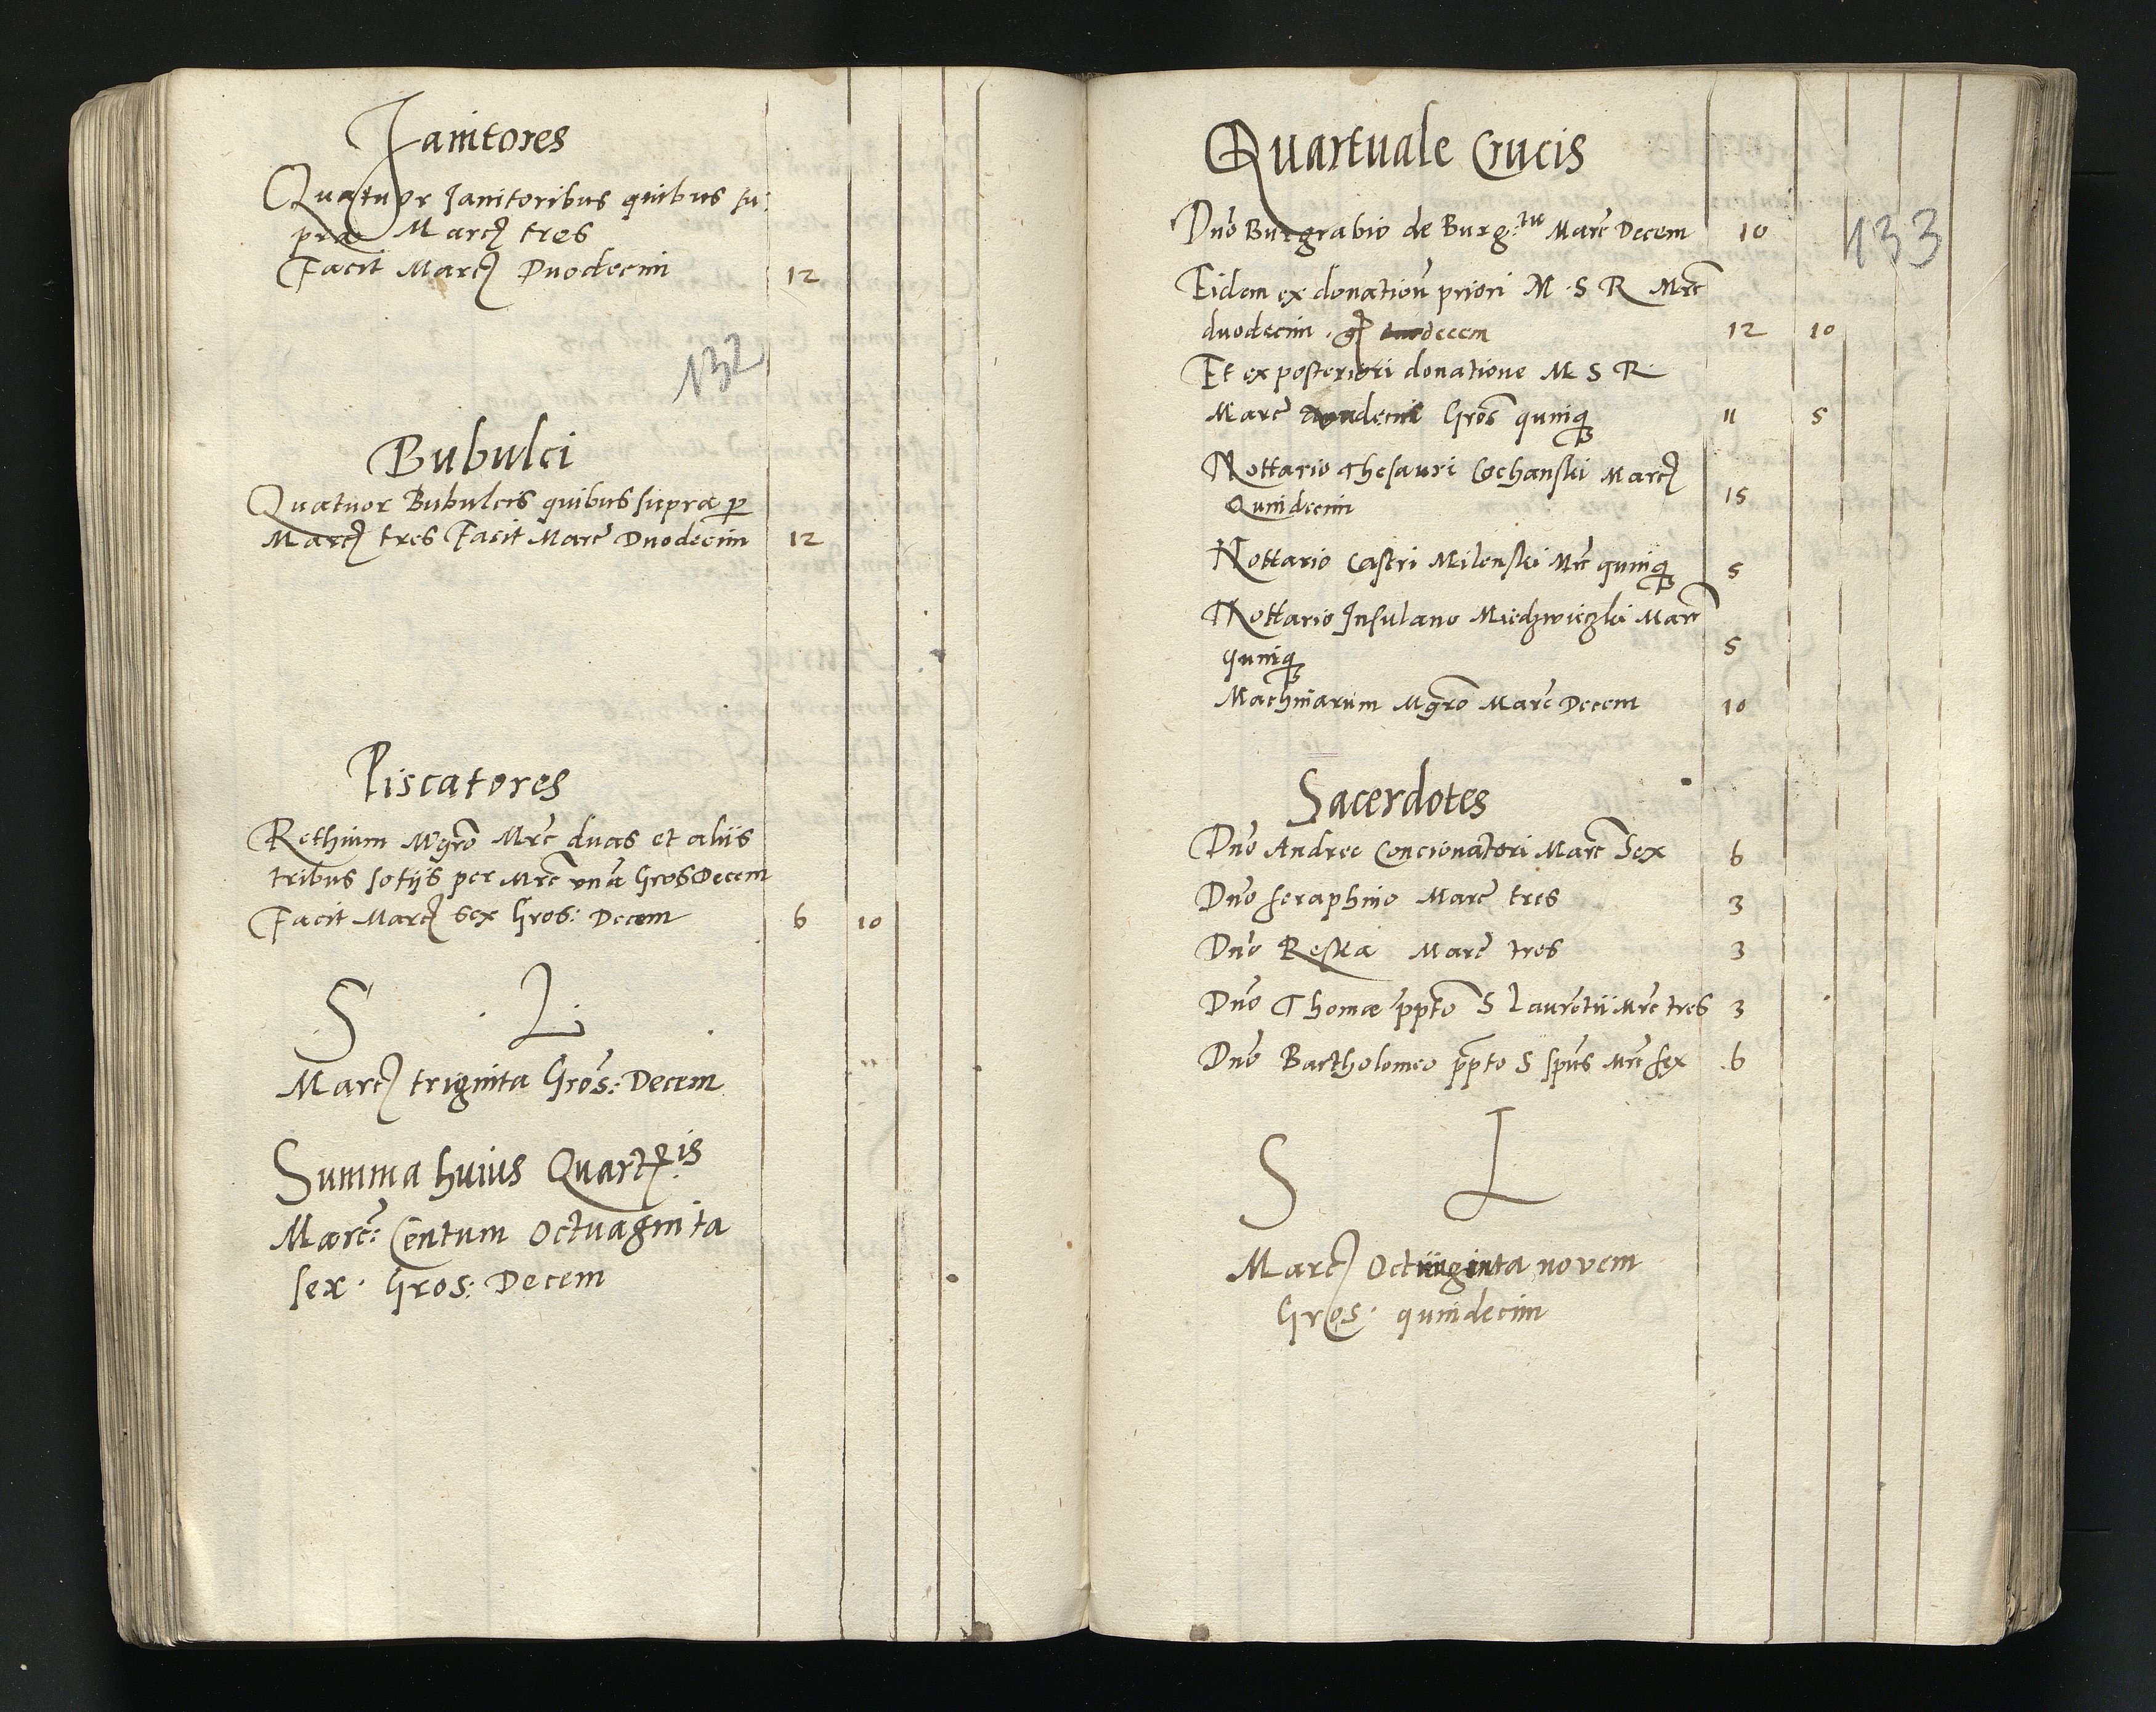 Janitores
Quatuor Janitoribus quibus su:
pra Marc tres
Facit Marc Duodecim 12
132
Bubulci
Quatuor Bubulcis quibus supra p
Marc tres Facit Marc Duodecim 12
Piscatores
Rethium Mgro Mrc duas et aliis
tribus sotijs per Mrc vna Gros Decem
Facit Marc sex Gros: Decem 6 10
S L
Marc triginta Gros: Decem
Summa huius Quart is
Marc: Centum Octuaginta
sex. Gros: Decem
Quartuale Crucis
133
Dno Burgrabio de Burg:tu Marc Decem 10
Eidem ex donation priori M. S R Mrc
duodecim. gr decem 12 10
Et ex posteriori donatione M S R
Marc Gros quinq 11 5
Nottario Thesauri Cochanski Marc
Quindecim 15
Nottario Castri Milenski Mrc quinq 5
Nottario Insulano Miedzwieczki Marc
quinq 5
Machinarum Mgro Marc Decem 10
Sacerdotes
Dno Andree Concionatori Marc Sex 6
Dno seraphino Marc tres 3
Dno Reska Marc tres 3
Dno Thomæ ppto S Laurentii Mrc tres 3
Dno Bartholomeo ppto S spus Mrc sex 6
S L
Marc Octuginta novem
Gros. quindecim